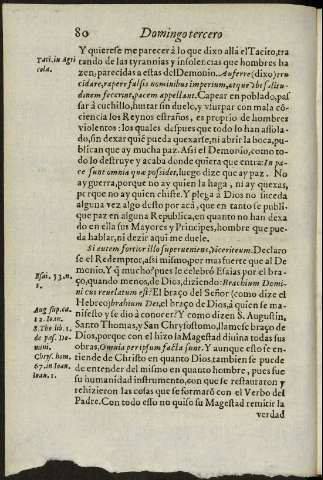 80 Domingo tercero
Y quierese me parecer à lo que dixo allà el Tacito, tra
tando de las tyrannias y insolencias que hombres ha
zen, parecidas a estas del Demonio. Auferre (dixo) tru
cidare, rapere falsis nominibus imperium, atque vbi solitu-
dinem fecerint, pacem appellant. Capear en poblado, pas
sar à cuchillo, hurtar sin duelo, y vsurpar con mala cõ-
ciencia los Reynos estraños, es proprio de hombres
violentos: los quales despues que todo lo han assola-
do, sin dexar quiē pueda quexarse, ni abrir la boca, pu-
blican que ay mucha paz. Assi el Demonio, como to-
do lo destruye y acaba donde quiera que entra: In pa-
ce sunt omnia quæ possidet, luego dize que ay paz. No
ay guerra, porque no ay quien la haga, ni ay quexas,
porque no ay quien chiste. Y plega à Dios no suceda
alguna vez algo desto por acá, que en tanto se publi-
que paz en alguna Republica, en quanto no han dexa
do en ella sus Mayores y Principes, hombre que pue-
da hablar, ni dezir aqui me duele.
Si autem fortior illo superueniens, vicerit eum. Declaro
se el Redemptor, assi mismo, por mas fuerte que al De
monio. Y q̃ mucho? pues le celebrò Esaias por el bra-
ço, quando menos, de Dios, diziendo: Brachium Domi-
ni cui reuelatum est? El braço del Señor (como dize el
Hebreo) brachium Dei, el braço de Dios, à quien se ma-
nifesto y se dio à conocer? Y como dizen S. Augustin,
Santo Thomas, y San Chrysostomo, llamese braço de
Dios, porque con el hizo la Magestad diuina todas sus
obras. Omnia per ipsum facta sunt. Y aunque esto se en-
tiende de Christo en quanto Dios, tambien se puede
de entender del mismo en quanto hombre, pues fue
su humanidad instrumento, con que se restauraron y
rehizieron las cosas que se formarõ con el Verbo del
Padre. Con todo esso no quiso su Magestad remitir la
verdad
Taci. in Agri
cola.
Esai. 53. n.
1.
Aug sup. ca.
12. Ioan.
S. Tho lib. 1.
de pas. Do-
mini.
Chrys. hom.
67. in Ioan.
Ioan. 1.